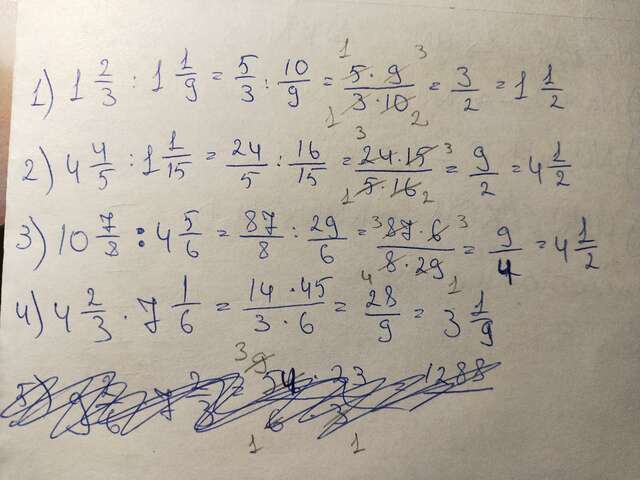 1) 1 2/3 : 1 1/9 = 5/3 : 10/9 = 5·9/3·10 = 3/2 = 1 1/2
2) 4 4/5 : 1 1/15 = 24/5 : 16/15 = 24·15/5·16 = 9/2 = 4 1/2
3) 10 7/8 : 4 5/6 = 87/8 : 29/6 = 87·6/8·29 = 9/4 = 4 1/2
4) 4 2/3 · 7 1/6 = 14·45/3·6 = 28/9 = 3 1/9
5) 54·23 = 1288